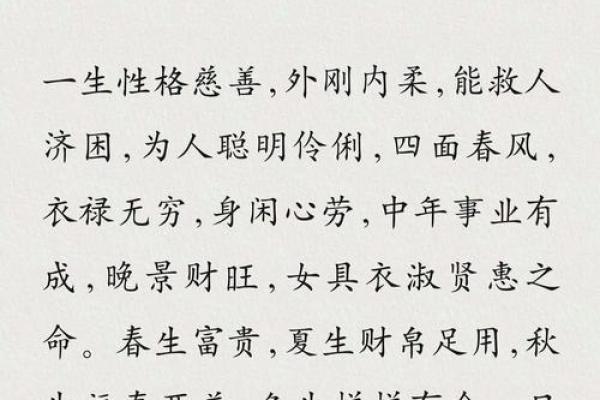 一生性格慈善,外刚内柔,能救人
济困,为人聪明伶俐,四面春风,
衣禄无穷,身闲心劳,中年事业有
成,晚景财旺,女具衣淑贤惠之
命。春生富贵,夏生财帛足用,秋